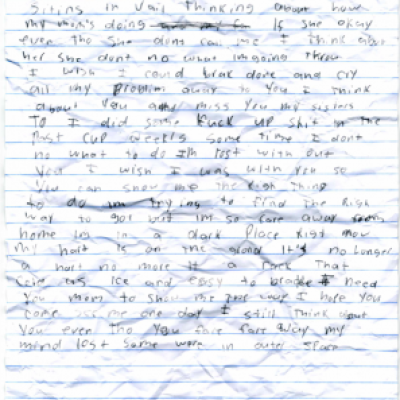 Siting in Jail thinking about how
my mom's doing is she okay
even tho she dont call me I think abut
her she dont no what imgoing throu
I wish I could brak done and cry
all my problem away to you I think
about you and miss you my sisters
To I did some Fuck up shit in the
past cup weeks some time I dont
no what to do Im lost with out
you I wish I was with you so
you can show me the righ thing
to do im trying to find the righ
way to go but im so fare away from
home Im in a dark Place right now
my hart is on the it's no longer
a hart no more it a rock that
as ice and easy to I need
you mom to show me the way I hope you
come see me one day I still think abut
you even tho you fare fare way my
mind lost some were in outer space